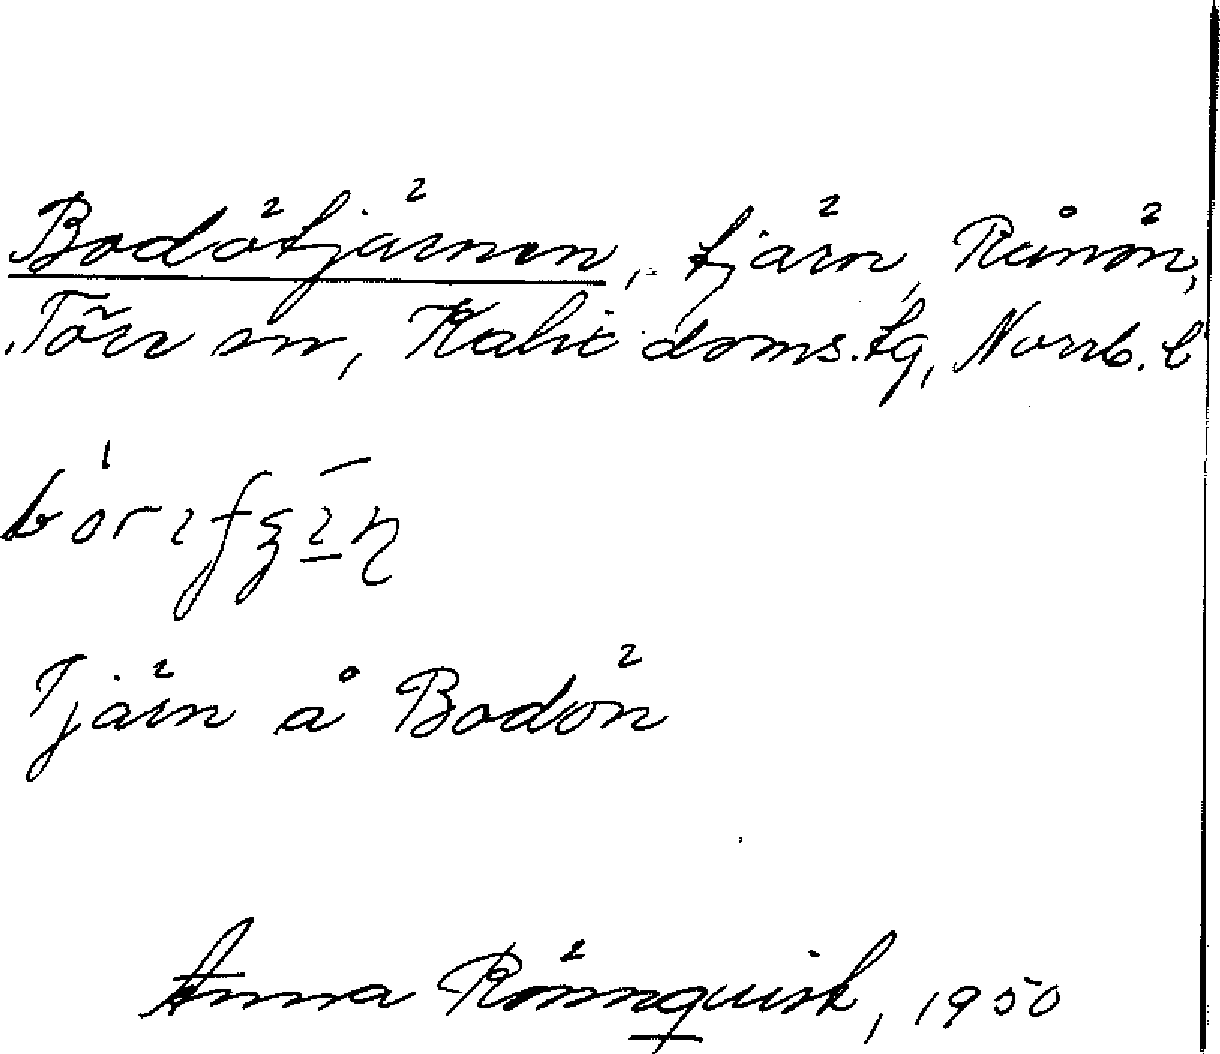 Bodötjärnen, tjärn, Rånön,
Töre sn, Kalix doms.lg, Norrb. l
Tjärn å Bodön
Anna Rönnquist, 1950